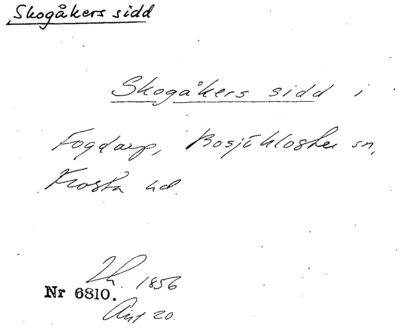 Skogåkers sidd
Skogåkers sidd i
Fogdarp, Bosjökloster sn,
Frosta hd.
1856
Nr 6810.
Ant 20.